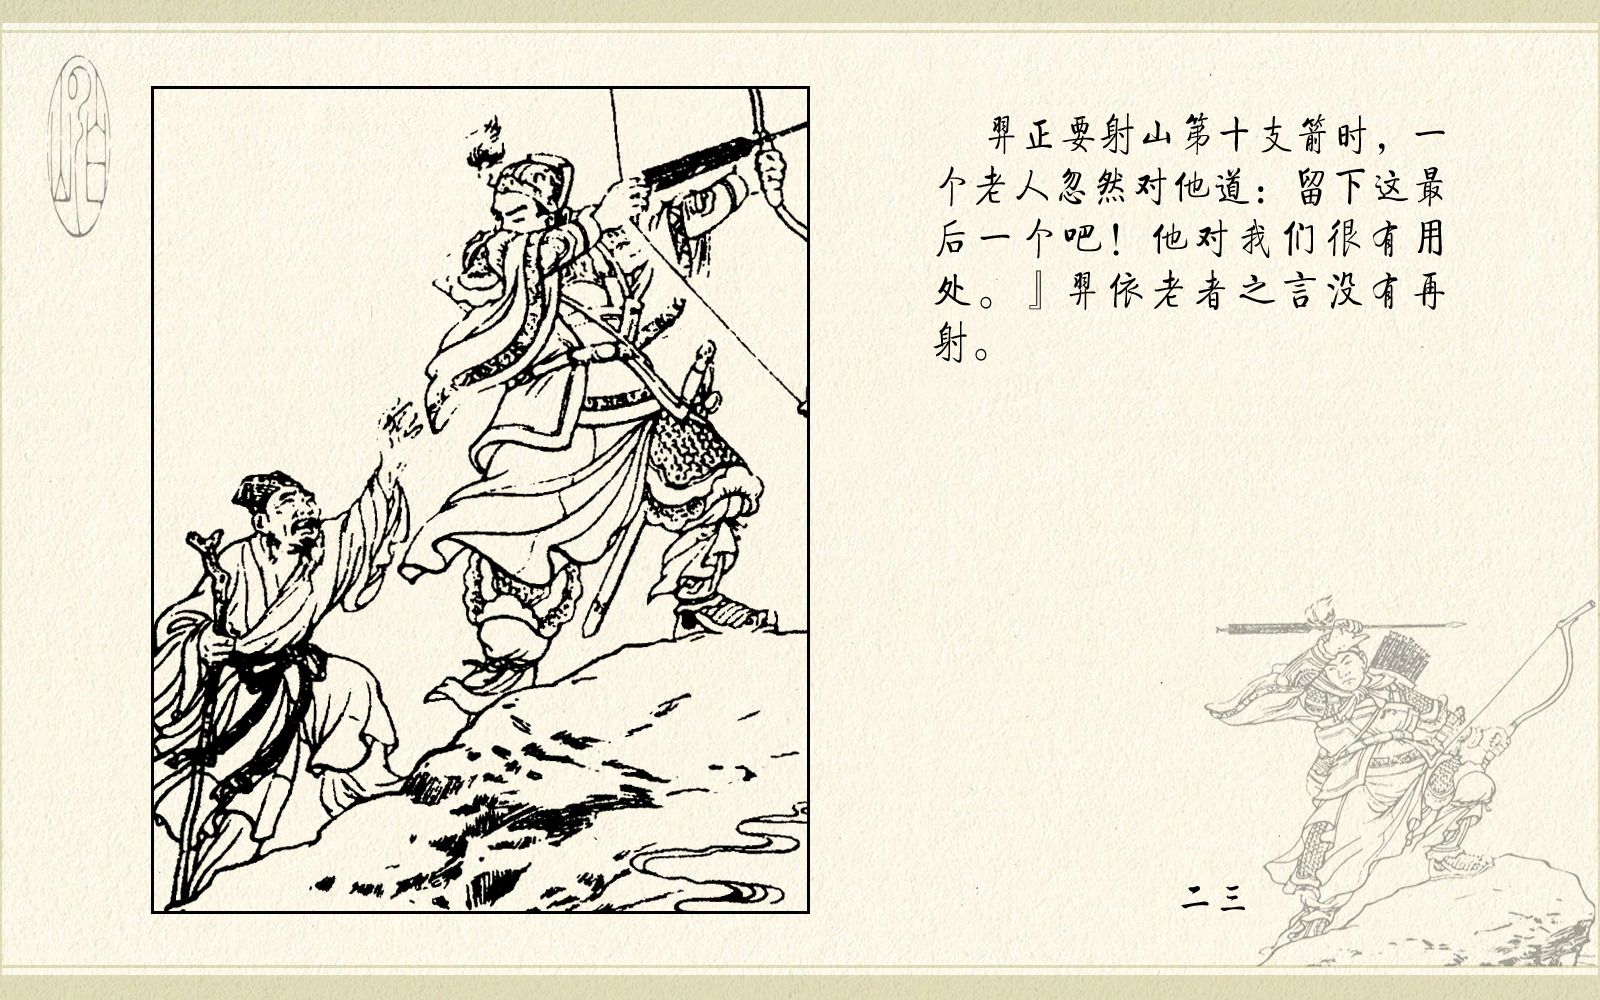 羿正要射山第十支箭时，一
个老人忽然对他道：留下这最
后一个吧！他对我们很有用
处。』羿依老者之言没有再
射。
二三